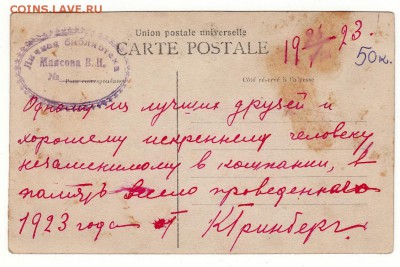 COINS.LAVE.RU
Union postale universelle
CARTE POSTALE
Личная библиотека
Маясова В.И.
№
19 23.
50к.
Côté réservé à l'adresse
Одному из лучших друзей и
хорошему искреннему человеку
незаменимому в компании, в
память весело проведенного
1923 года от К Гринберг